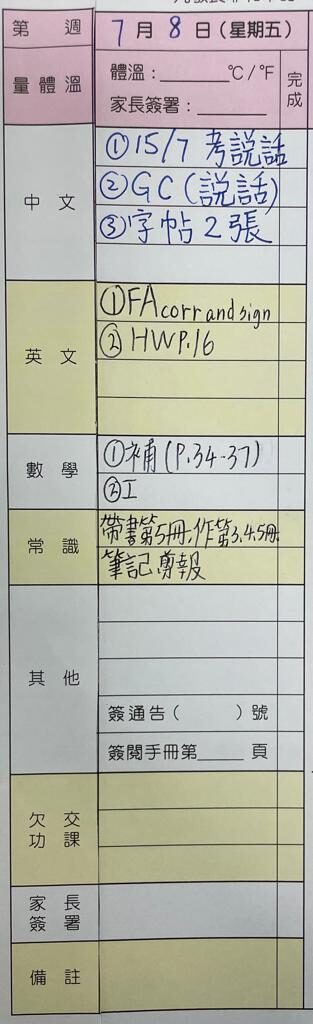 第 週 7月8日(星期五)
量體溫 體溫:______°C/°F 完成
家長簽署:______
中文 ①15/7 考説話
②GC(説話)
③字帖2張
英文 ①FA corr and sign
②HWP.16
數學 ①補(P.34-37)
②工
常識 帶書第5冊,作第3,4,5冊,
筆記,剪報
其他
簽通告( )號
簽閱手冊第____頁
欠交功課
家長簽署
備註